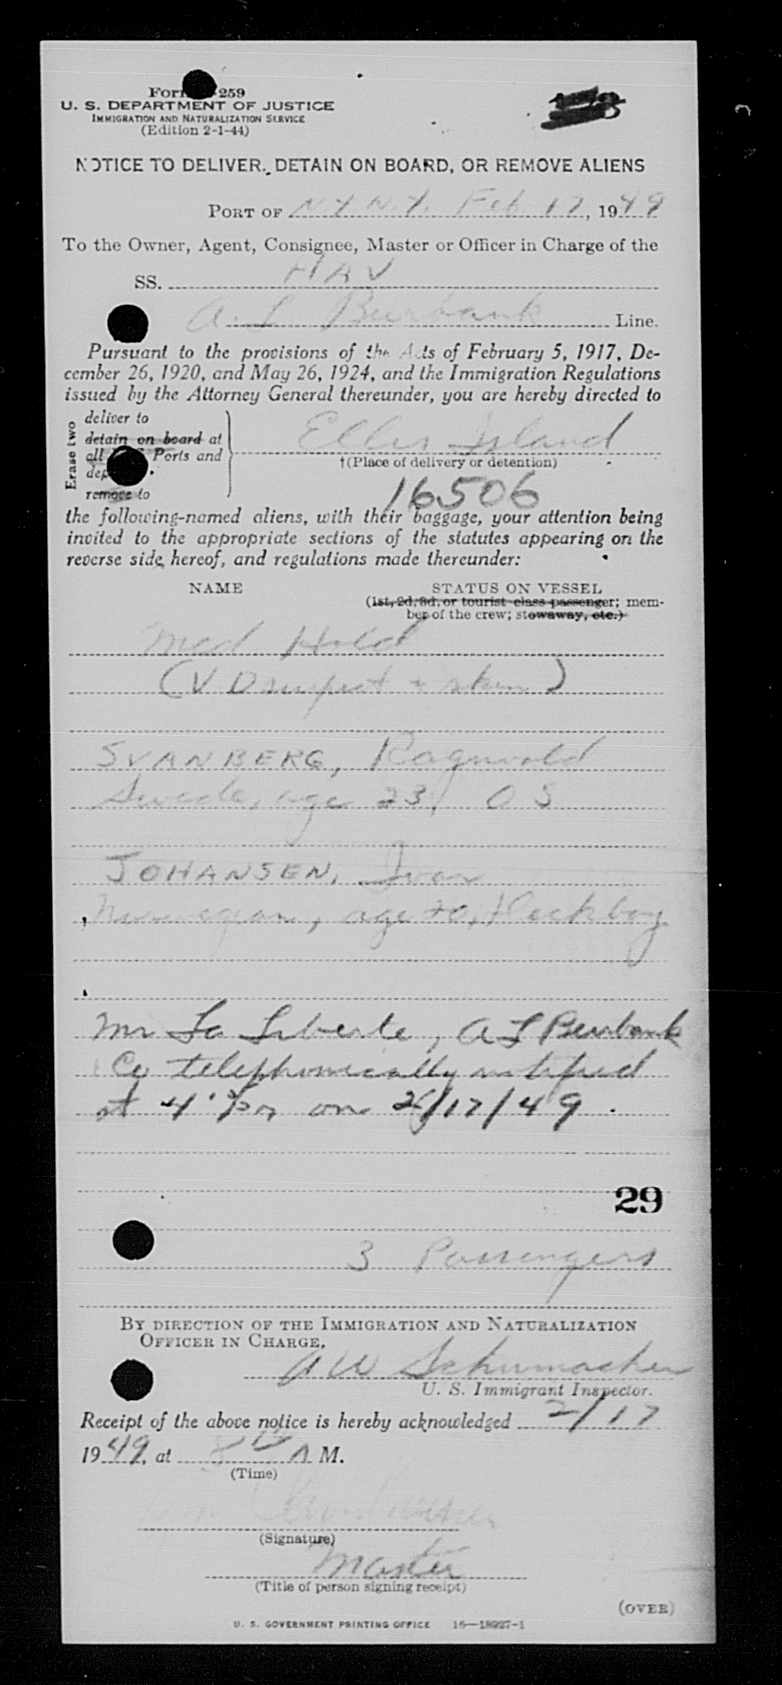 Form 259
U. S. DEPARTMENT OF JUSTICE
IMMIGRATION AND NATURALIZATION SERVICE
(Edition 2-1-44)
NOTICE TO DELIVER, DETAIN ON BOARD, OR REMOVE ALIENS
PORT OF N.Y. N.Y. Feb 17, 1949
To the Owner, Agent, Consignee, Master or Officer in Charge of the
SS. HAV
A. L Burbank Line.
Pursuant to the provisions of the Acts of February 5, 1917, De-
cember 26, 1920, and May 26, 1924, and the Immigration Regulations
issued by the Attorney General thereunder, you are hereby directed to
Erase two
deliver to
detain on board at
all Ports and
remove to
Ellis Island
†(Place of delivery or detention)
16506
the following-named aliens, with their baggage, your attention being
invited to the appropriate sections of the statutes appearing on the
reverse side, hereof, and regulations made thereunder:
NAME
STATUS ON VESSEL
(1st, 2d, 3d, or tourist class passenger; mem-
ber of the crew; stowaway, etc.)
Med Hold
(V D suspect + skin)
SVANBERG, Ragnvald
Swede, age 23, OS
JOHANSEN, Ivar
Norwegian, age 20, Deckboy
Mr La Liberte, A L Burbank
Co telephonically notified
at 4 on 2/17/49.
29
3 Passengers
BY DIRECTION OF THE IMMIGRATION AND NATURALIZATION
OFFICER IN CHARGE,
A W Schumacher
U. S. Immigrant Inspector.
Receipt of the above notice is hereby acknowledged 2/17
1949, at A M.
(Time)
(Signature)
Master
(Title of person signing receipt)
(OVER)
U. S. GOVERNMENT PRINTING OFFICE 16—18927-1